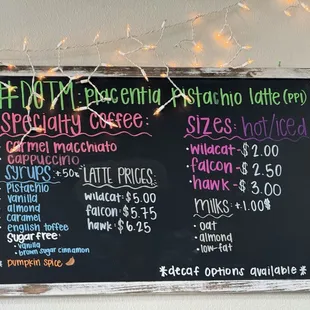 #DOTM: placentia Pistachio latte (PPl)
Specialty Coffee:
- carmel macchiato
- cappuccino
Syrups: +.50¢
- Pistachio
- vanilla
- almond
- caramel
- english toffee
Sugar free:
- vanilla
- brown sugar cinnamon
pumpkin spice
LATTE PRICES:
wildcat: $5.00
falcon: $5.75
hawk: $6.25
SIZES: hot/iced
- wildcat - $2.00
- falcon - $2.50
- hawk - $3.00
Milks: +1.00$
- oat
- almond
- low-fat
*decaf options available*